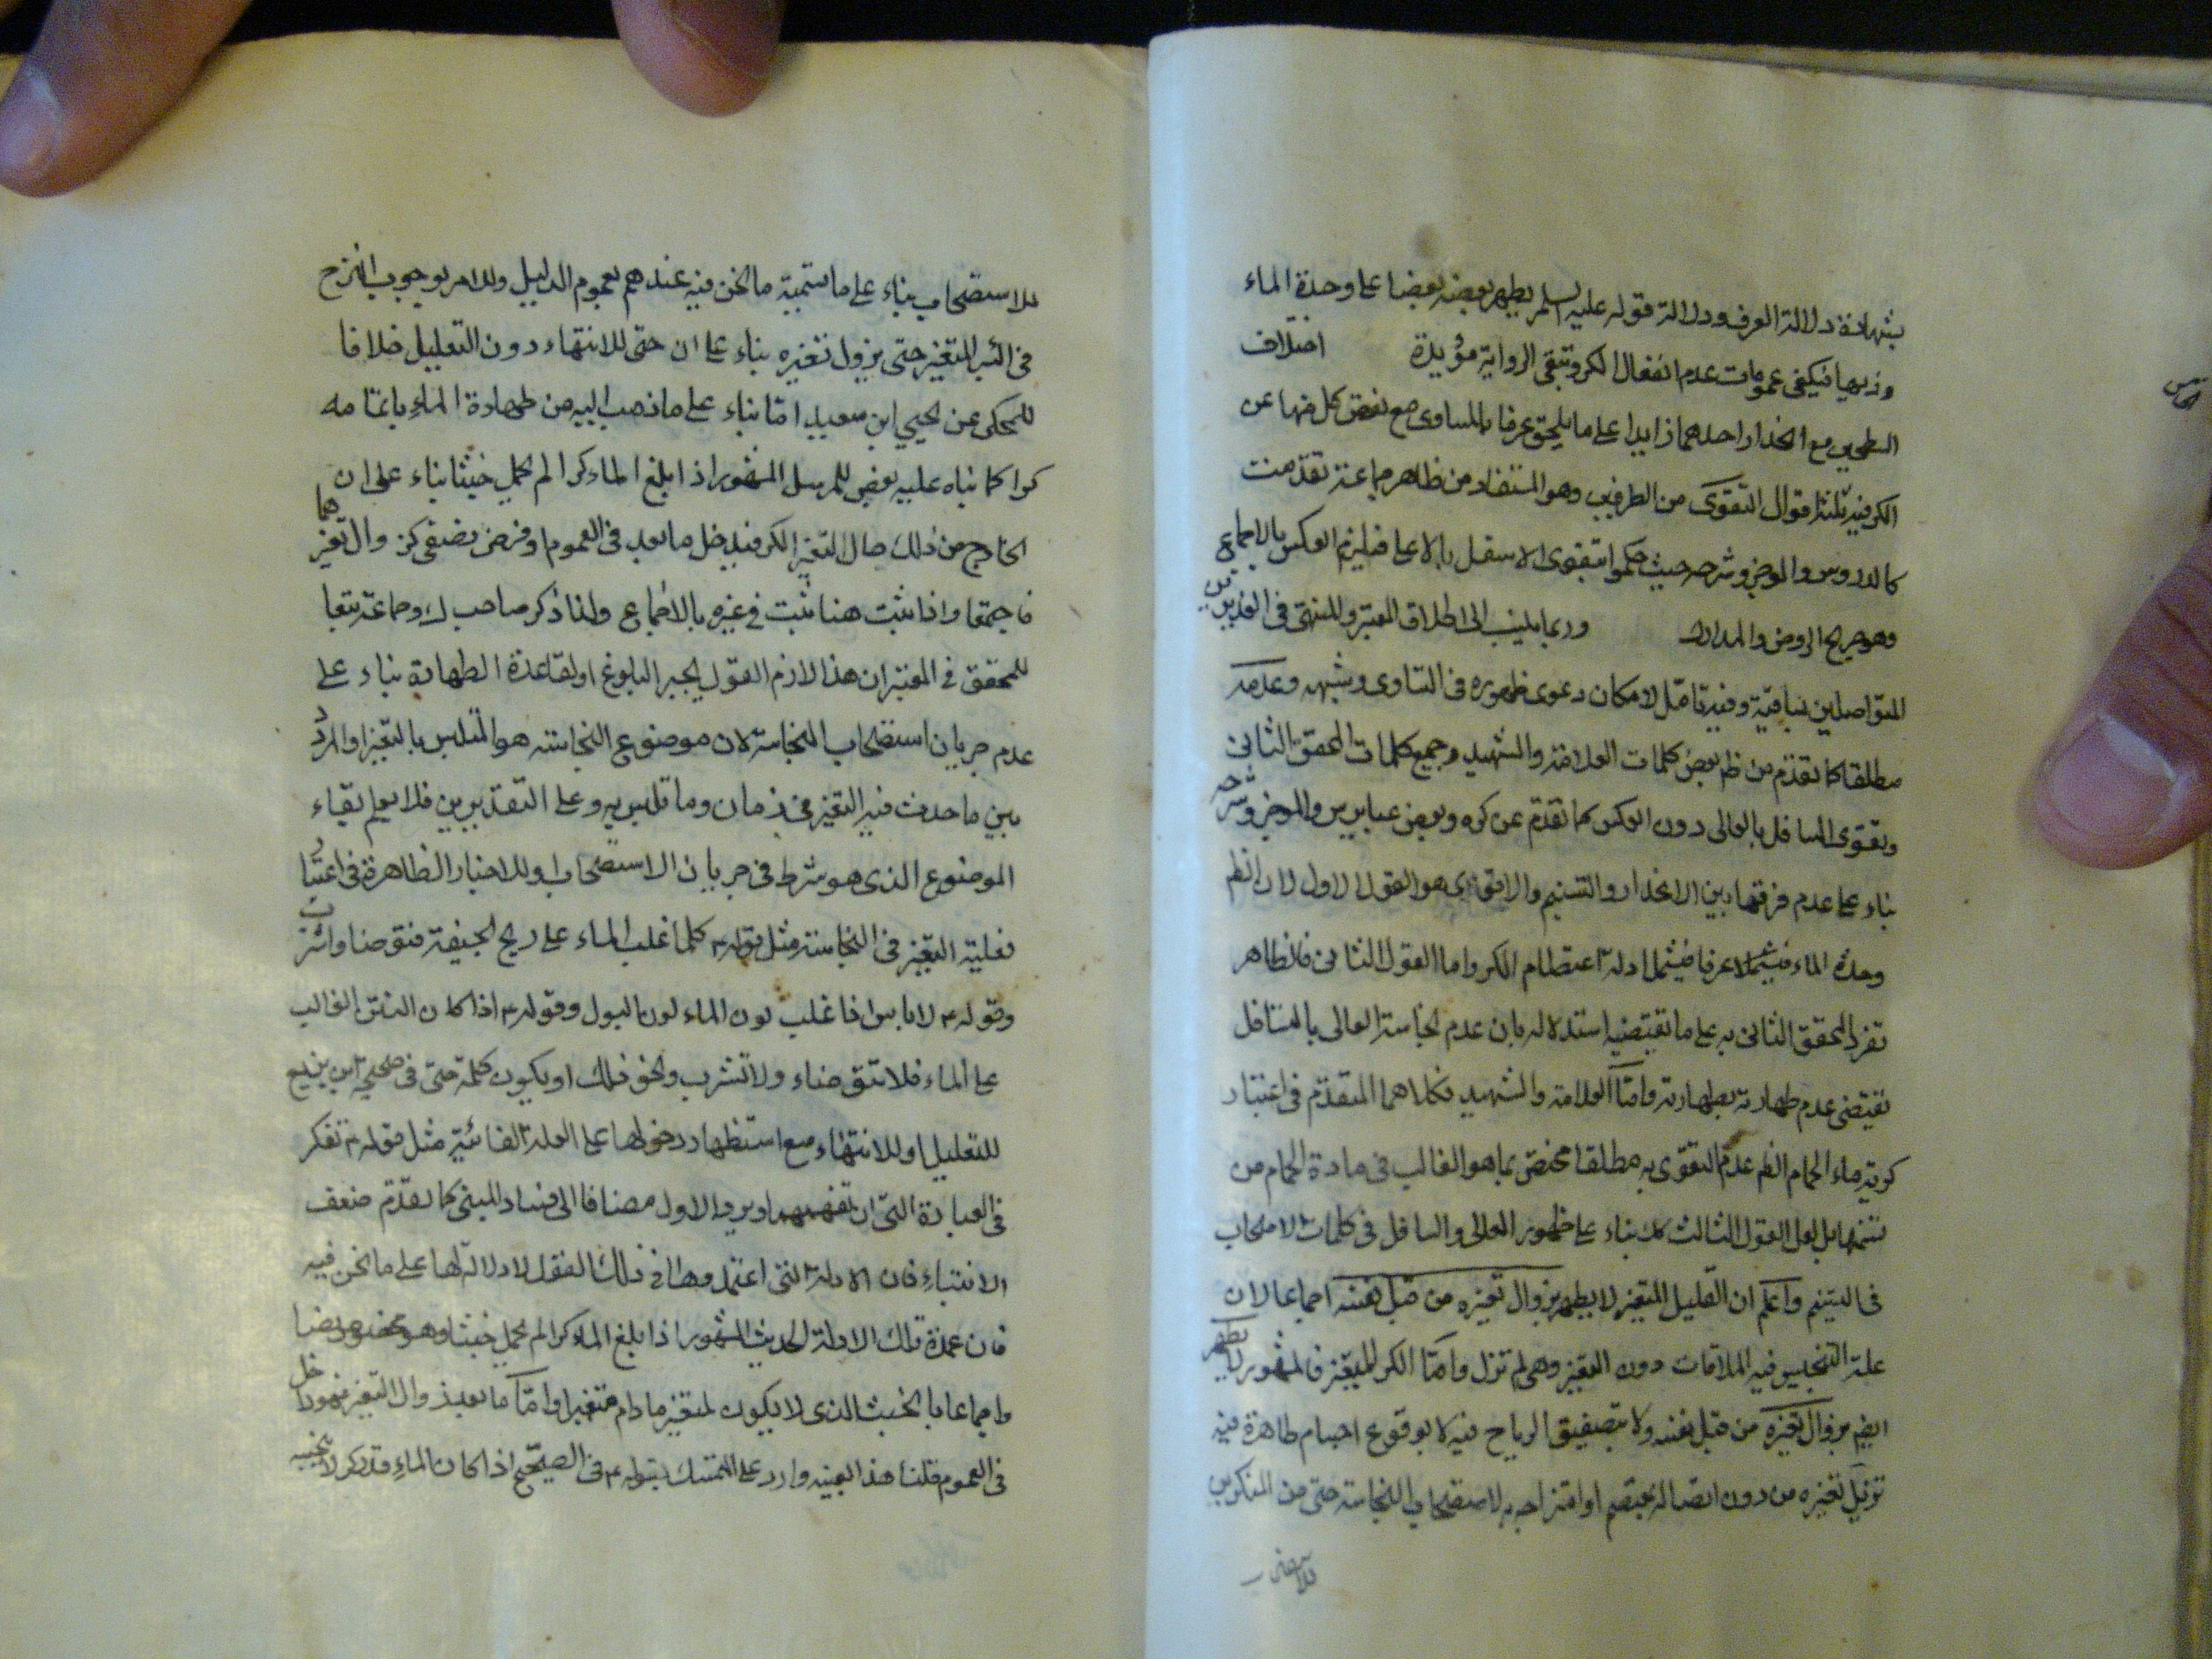 بشهادة دلالة العرف ودلالة قوله عليه السلم يطهر بعضه بعضا على وحدة الماء
وفيكفى عمومات عدم انفعال الكر وتبقى الرواية مؤيدة اختلاف
السطحين مع انحدار احدهما زايدا على ما يلحق عرفا بالمساوى مع نقص كل منها عن
الكر فيه ثلثة اقوال التقوى من الطرفين وهو المستفاد من ظاهر جماعة تقدمت
كالدروس والموجز وشرحه حيث حكموا بتقوى الاسفل بالاعلى فيلزم العكس بالاجماع
وهو صريح الروض والمدارك وربما ينسب الى اطلاق المعتبر والمنتهى فى الغديرين
المتواصلين بساقية وفيه تامل لامكان دعوى ظهوره فى التساوى وشبهه وعدمه
مطلقا كما تقدم من ظم بعض كلمات العلامة والشهيد وجميع كلمات المحقق الثانى
وتقوى السافل بالعالى دون العكس كما تقدم عن كره وبعض عباير س والموجز وشرحه
بناء على عدم فرقهما بين الانحدار والتسنيم والاقوى هو القول الاول لان الظم
وحدة الماء عرفا فيشمله ادلة اعتصام الكر واما القول الثانى فالظاهر
تفرد المحقق الثانى به على ما تقتضيه استدلاله بان عدم نجاسة العالى بالسافل
تقتضى عدم طهارته بطهارته واما العلامة والشهيد فكلاهما المتقدم فى اعتبار
كرية ماء الحمام الظم عدم التقوى به مطلقا مختص بما هو الغالب فى مادة الحمام من
تسنمها بل لعل القول الثالث كك بناء على ظهور العالى والسافل فى كلمات الاصحاب
فى التسنيم واعلم ان القليل المتغير لا يطهر بزوال تغيره من قبل نفسه اجماعا لان
علة التنجيس فيه الملاقات دون التغير وهى لم تزل واما الكر المتغير فالمشهور لا يطهر
ايضم بزوال تغيره من قبل نفسه ولا بتصفيق الرياح فيه لا بوقوع اجسام طاهرة فيه
تزيل تغيره من دون اتصاله بمعتصم او امتزاجه به لاستصحاب النجاسة حتى من المنكرين
للاستصحاب بناء على ما ستسمية ما نحن فيه عندهم بعموم الدليل وللامر بوجوب النزح
فى البئر المتغير حتى يزول تغيره بناء على ان حتى للانتهاء دون التعليل خلافا
للمحكى عن يحيى ابن سعيد اما بناء على ما ذهب اليه من طهارة الماء باتمامه
كرا كما بناه عليه بعض للمرسل المشهور اذا بلغ الماء كرا لم يحمل خبثا بناء على ان
الخارج من ذلك حال التغير الكر فيدخل ما بعد فى العموم او فرض نصفى كر زوال تغيرهما
فاجتمعا واذا ثبت هنا ثبت فى غيره بالاجماع ولذا ذكر صاحب ك وجماعة تبعا
للمحقق فى المعتبر ان هذا لازم القول بجبر البلوغ او لقاعدة الطهارة بناء على
عدم جريان استصحاب النجاسة لان موضوع النجاسة هو المتلبس بالتغير او المردد
بين ما حدث فيه التغير فى زمان وما تلبس به وعلى التقديرين فلا يعلم بقاء
الموضوع الذى هو شرط فى جريان الاستصحاب وللاخبار الظاهرة فى اعتبار
فعلية التغير فى النجاسة مثل قوله ع كلما غلب الماء على ريح الجيفة فتوضا واشرب
وقوله ع لا باس اذا غلب لون الماء لون البول وقوله ع اذا كان النتن الغالب
على الماء فلا تتوضاء ولا تشرب ونحو ذلك او بكون كلمة حتى فى صحيحة ابن بزيع
للتعليل او للانتهاء مع استظهار دخولها على العلة الغائية مثل قوله ع تفكر
فى العبادة التى ان ويرد الاول مضافا الى فساد المبنى كما تقدم ضعف
الانتباء فان الادلة التى اعتمدوها فى ذلك القول لا دلالة لها على ما نحن فيه
فان عمدة تلك الادلة الحديث المشهور اذا بلغ الماء كرا لم يحمل خبثا وهو مخصوص نصا
واجماعا بالخبث الذى لا يكون لمتغير مادام متغيرا واما ما بعد زوال التغير فهو داخل
فى العموم قلنا هذا بعينه وارد على التمسك بقوله ع فى الصحيح اذا كان الماء قدر كر لا ينجسه